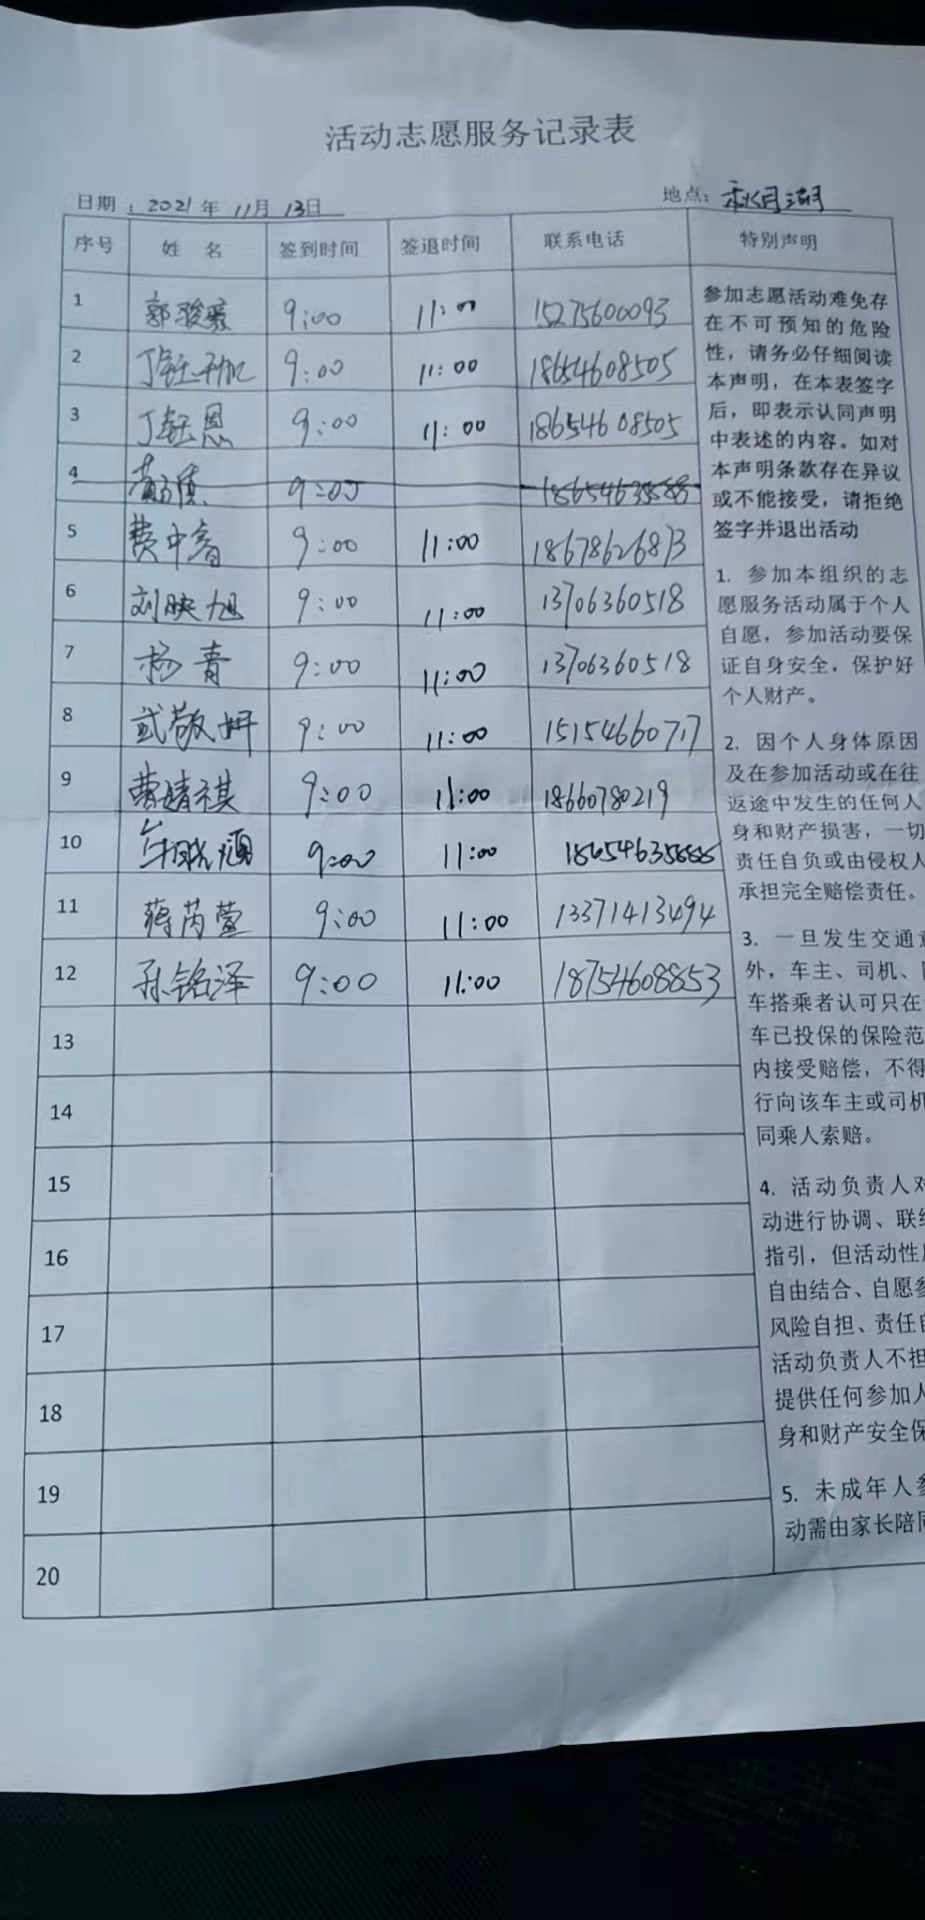 活动志愿服务记录表
日期：2021年11月13日 地点：秋月湖
序号 姓 名 签到时间 签退时间 联系电话 特别声明
1 9:00 11:00 15275600093
2 9:00 11:00 18654608505
3 9:00 11:00 18654608505
4 9:00
5 费中睿 9:00 11:00 18678626813
6 刘映旭 9:00 11:00 13706360518
7 杨青 9:00 11:00 13706360518
8 武敬妍 9:00 11:00 15154660717
9 曹婧祺 9:00 11:00 18660780219
10 9:00 11:00
11 蒋芮萱 9:00 11:00 13371413494
12 孙铭泽 9:00 11:00 18754608853
13
14
15
16
17
18
19
20
参加志愿活动难免存
在不可预知的危险
性，请务必仔细阅读
本声明，在本表签字
后，即表示认同声明
中表述的内容。如对
本声明条款存在异议
或不能接受，请拒绝
签字并退出活动
1. 参加本组织的志
愿服务活动属于个人
自愿，参加活动要保
证自身安全，保护好
个人财产。
2. 因个人身体原因
及在参加活动或在往
返途中发生的任何人
身和财产损害，一切
责任自负或由侵权人
承担完全赔偿责任。
3. 一旦发生交通意
外，车主、司机、同
车搭乘者认可只在
车已投保的保险范
内接受赔偿，不得
行向该车主或司机
同乘人索赔。
4. 活动负责人对
动进行协调、联络
指引，但活动性质
自由结合、自愿参
风险自担、责任自
活动负责人不担
提供任何参加人
身和财产安全保
5. 未成年人参
动需由家长陪同